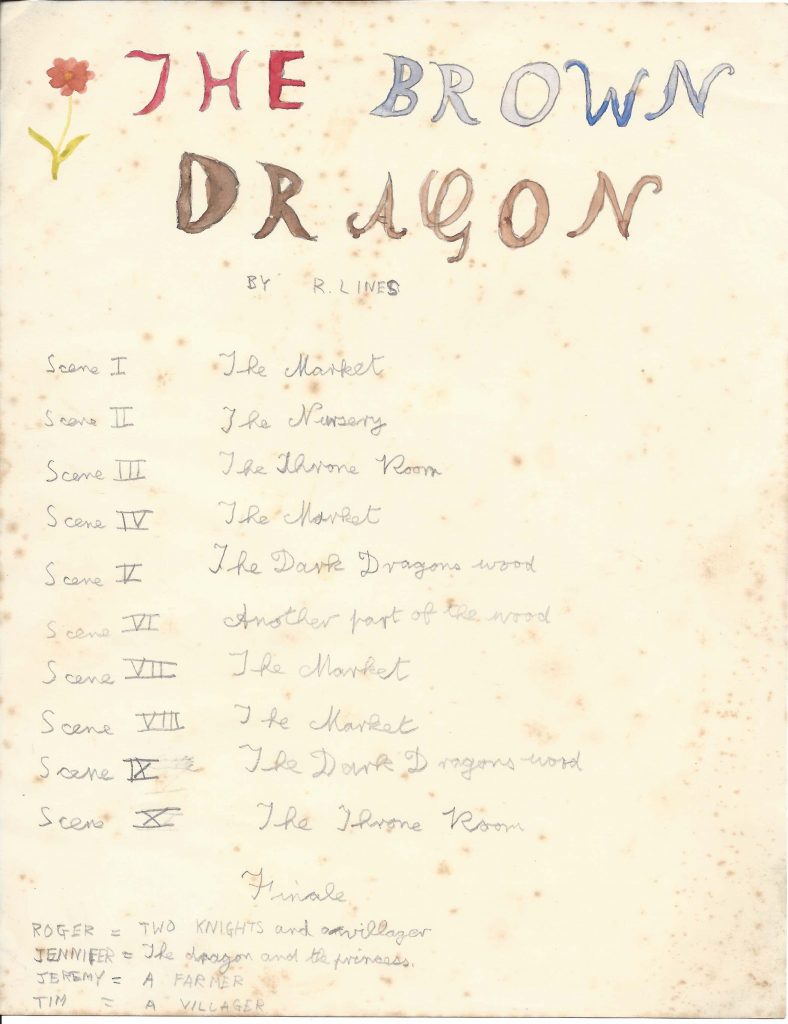 THE BROWN
DRAGON
BY R. LINES
Scene I The Market
Scene II The Nursery
Scene III The Throne Room
Scene IV The Market
Scene V The Dark Dragons wood
Scene VI Another part of the wood
Scene VII The Market
Scene VIII The Market
Scene IX The Dark Dragons wood
Scene X The Throne Room
Finale
ROGER = TWO KNIGHTS and a villager
JENNIFER = The dragon and the princess.
JEREMY = A FARMER
TIM = A VILLAGER